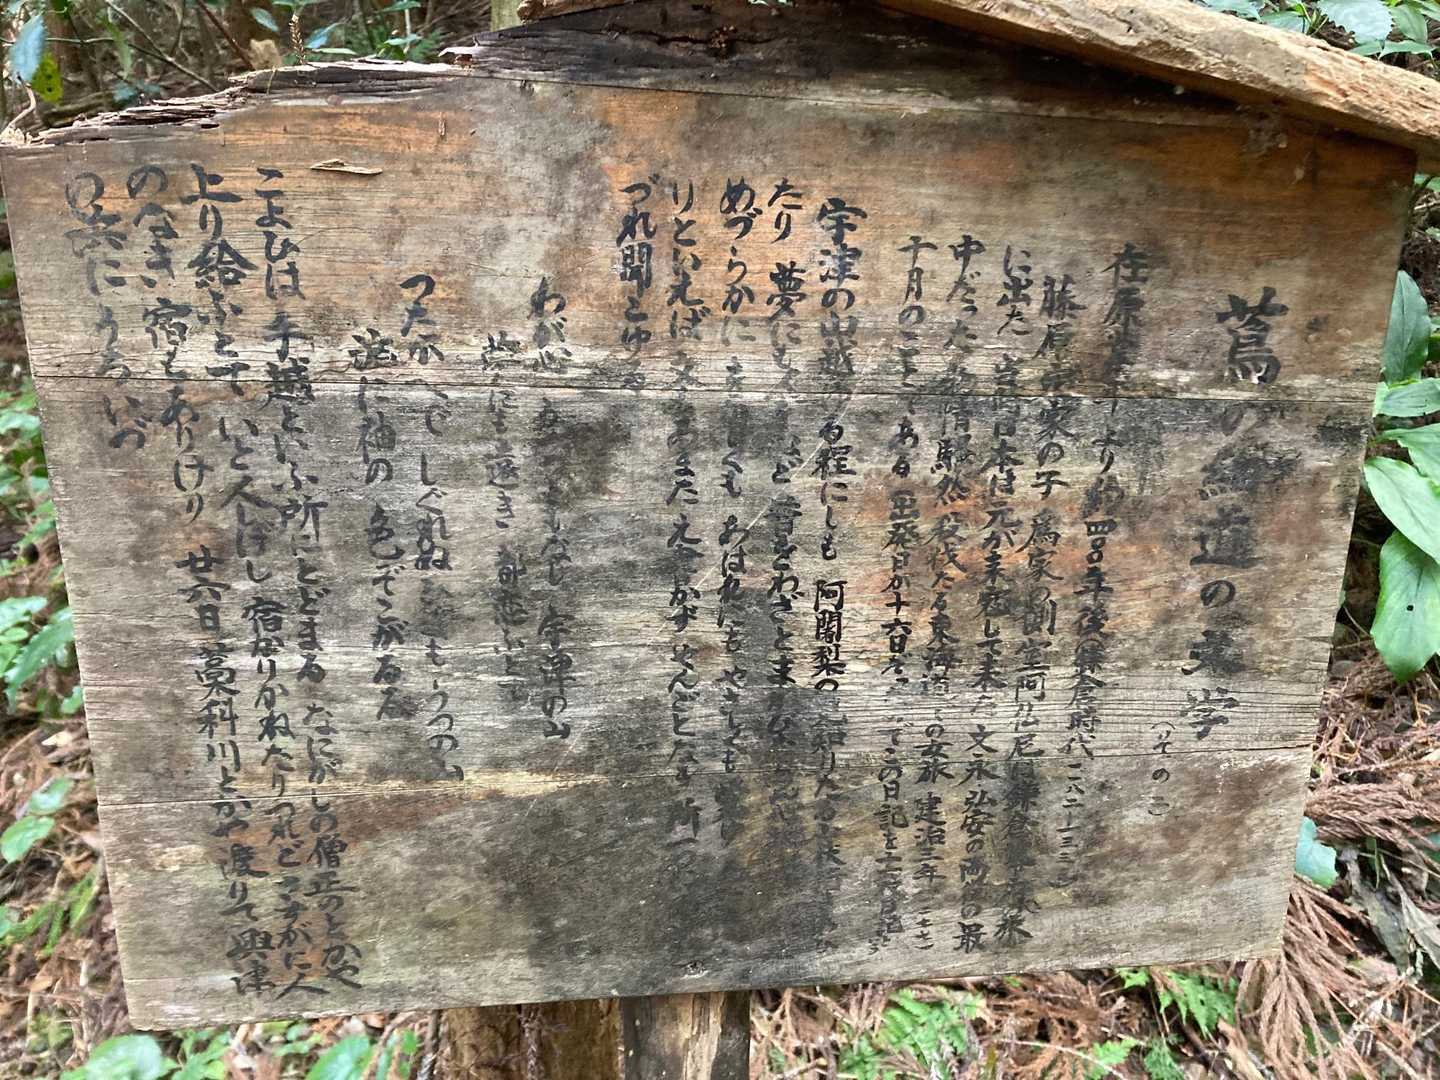 蔦の細道の文学
(その二)
在原業平より約四百年後(鎌倉時代 一一八二―一三三三)
藤原定家の子 為家の側室阿仏尼は鎌倉
に出た 当時日本は元が来寇して来た 文永 弘安の両役の最
中だった 物情騒然 殺伐たる東海道での女旅 建治三年
十月のことである 出発日が十六日 この日記を十六夜日記と
宇津の山越ゆる程にしも 阿闍梨の見知りたる山伏行きあひ
たり 夢にも人をなど昔をわざとまねび
めづらかに をかしくも あはれにも やさしくも
りといえば 文もあまたえ書かず やんごとなき所一つ
づれ聞こゆる
わが心 うつつともなし 宇津の山
夢にも遠き 都恋ふとて
つたかへで しぐれぬひまも うつの山
涙に袖の 色ぞこがるる
こよひは 手越といふ所にとどまる なにがしの僧正のとかや
上り給ふとて いと人しげし 宿かりかねたりつれど さすがに人
のなき 宿もありけり 廿六日 藁科川とかや渡りて 興津
の浜に うちいづ